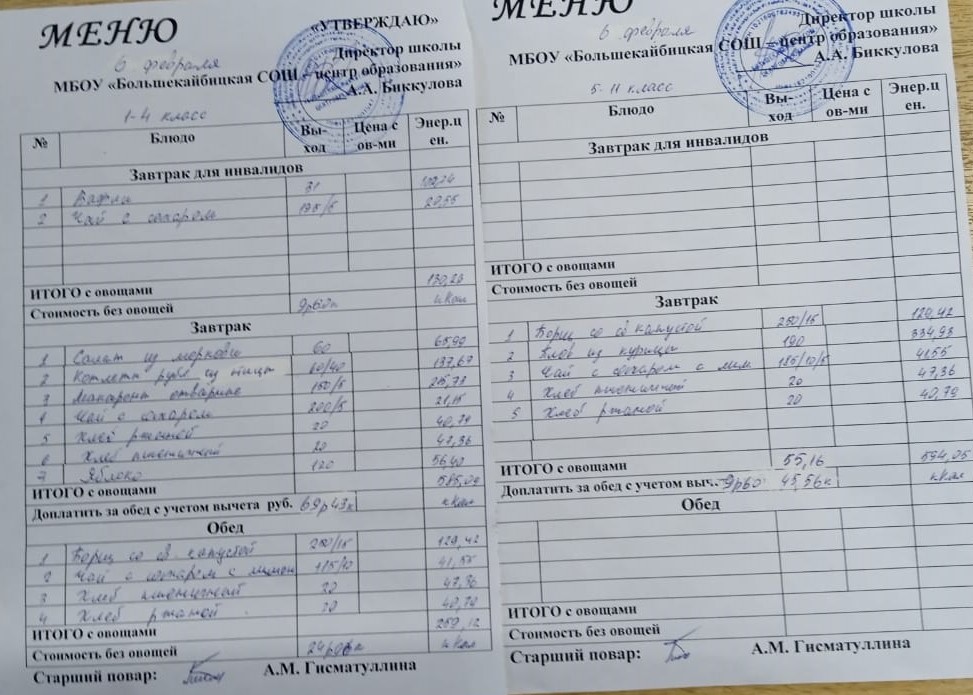 МЕНЮ
«УТВЕРЖДАЮ»
6 февраля
Директор школы
МБОУ «Большекайбицкая СОШ – центр образования»
А.А. Биккулова
1-4 класс
№ Блюдо Вы-ход Цена с ов-ми Энер.ц ен.
Завтрак для инвалидов
1 Вафли 31
2 Чай с сахаром 195/5
ИТОГО с овощами 130,23
Стоимость без овощей 9р60к кКал
Завтрак
1 Салат из моркови 60 65,90
2 Котлета руб. из птицы 60/40 137,67
3 Макароны отварные 150/5
4 Чай с сахаром 200/5 21,15
5 Хлеб ржаной 20 40,79
6 Хлеб пшеничный 20 47,36
7 Яблоко 120 56,40
ИТОГО с овощами
Доплатить за обед с учетом вычета руб. 69р43к кКал
Обед
1 Борщ со св. капустой 250/15 129,42
2 Чай с сахаром с лимон 41,55
3 Хлеб пшеничный 20 47,36
4 Хлеб ржаной 20 40,79
ИТОГО с овощами 259,12
Стоимость без овощей кКал
Старший повар: А.М. Гисматуллина
МЕНЮ
6 февраля
Директор школы
МБОУ «Большекайбицкая СОШ – центр образования»
А.А. Биккулова
5-11 класс
№ Блюдо Вы-ход Цена с ов-ми Энер.ц ен.
Завтрак для инвалидов
ИТОГО с овощами
Стоимость без овощей
Завтрак
1 Борщ со св капустой 250/15 129,42
2 Плов из курицы 190 334,93
3 Чай с сахаром с лим 185/10/5 41,55
4 Хлеб пшеничный 20 47,36
5 Хлеб ржаной 20 40,79
ИТОГО с овощами 55,16 594,05
Доплатить за обед с учетом выч. 9р60 45,56к кКал
Обед
ИТОГО с овощами
Стоимость без овощей
Старший повар: А.М. Гисматуллина